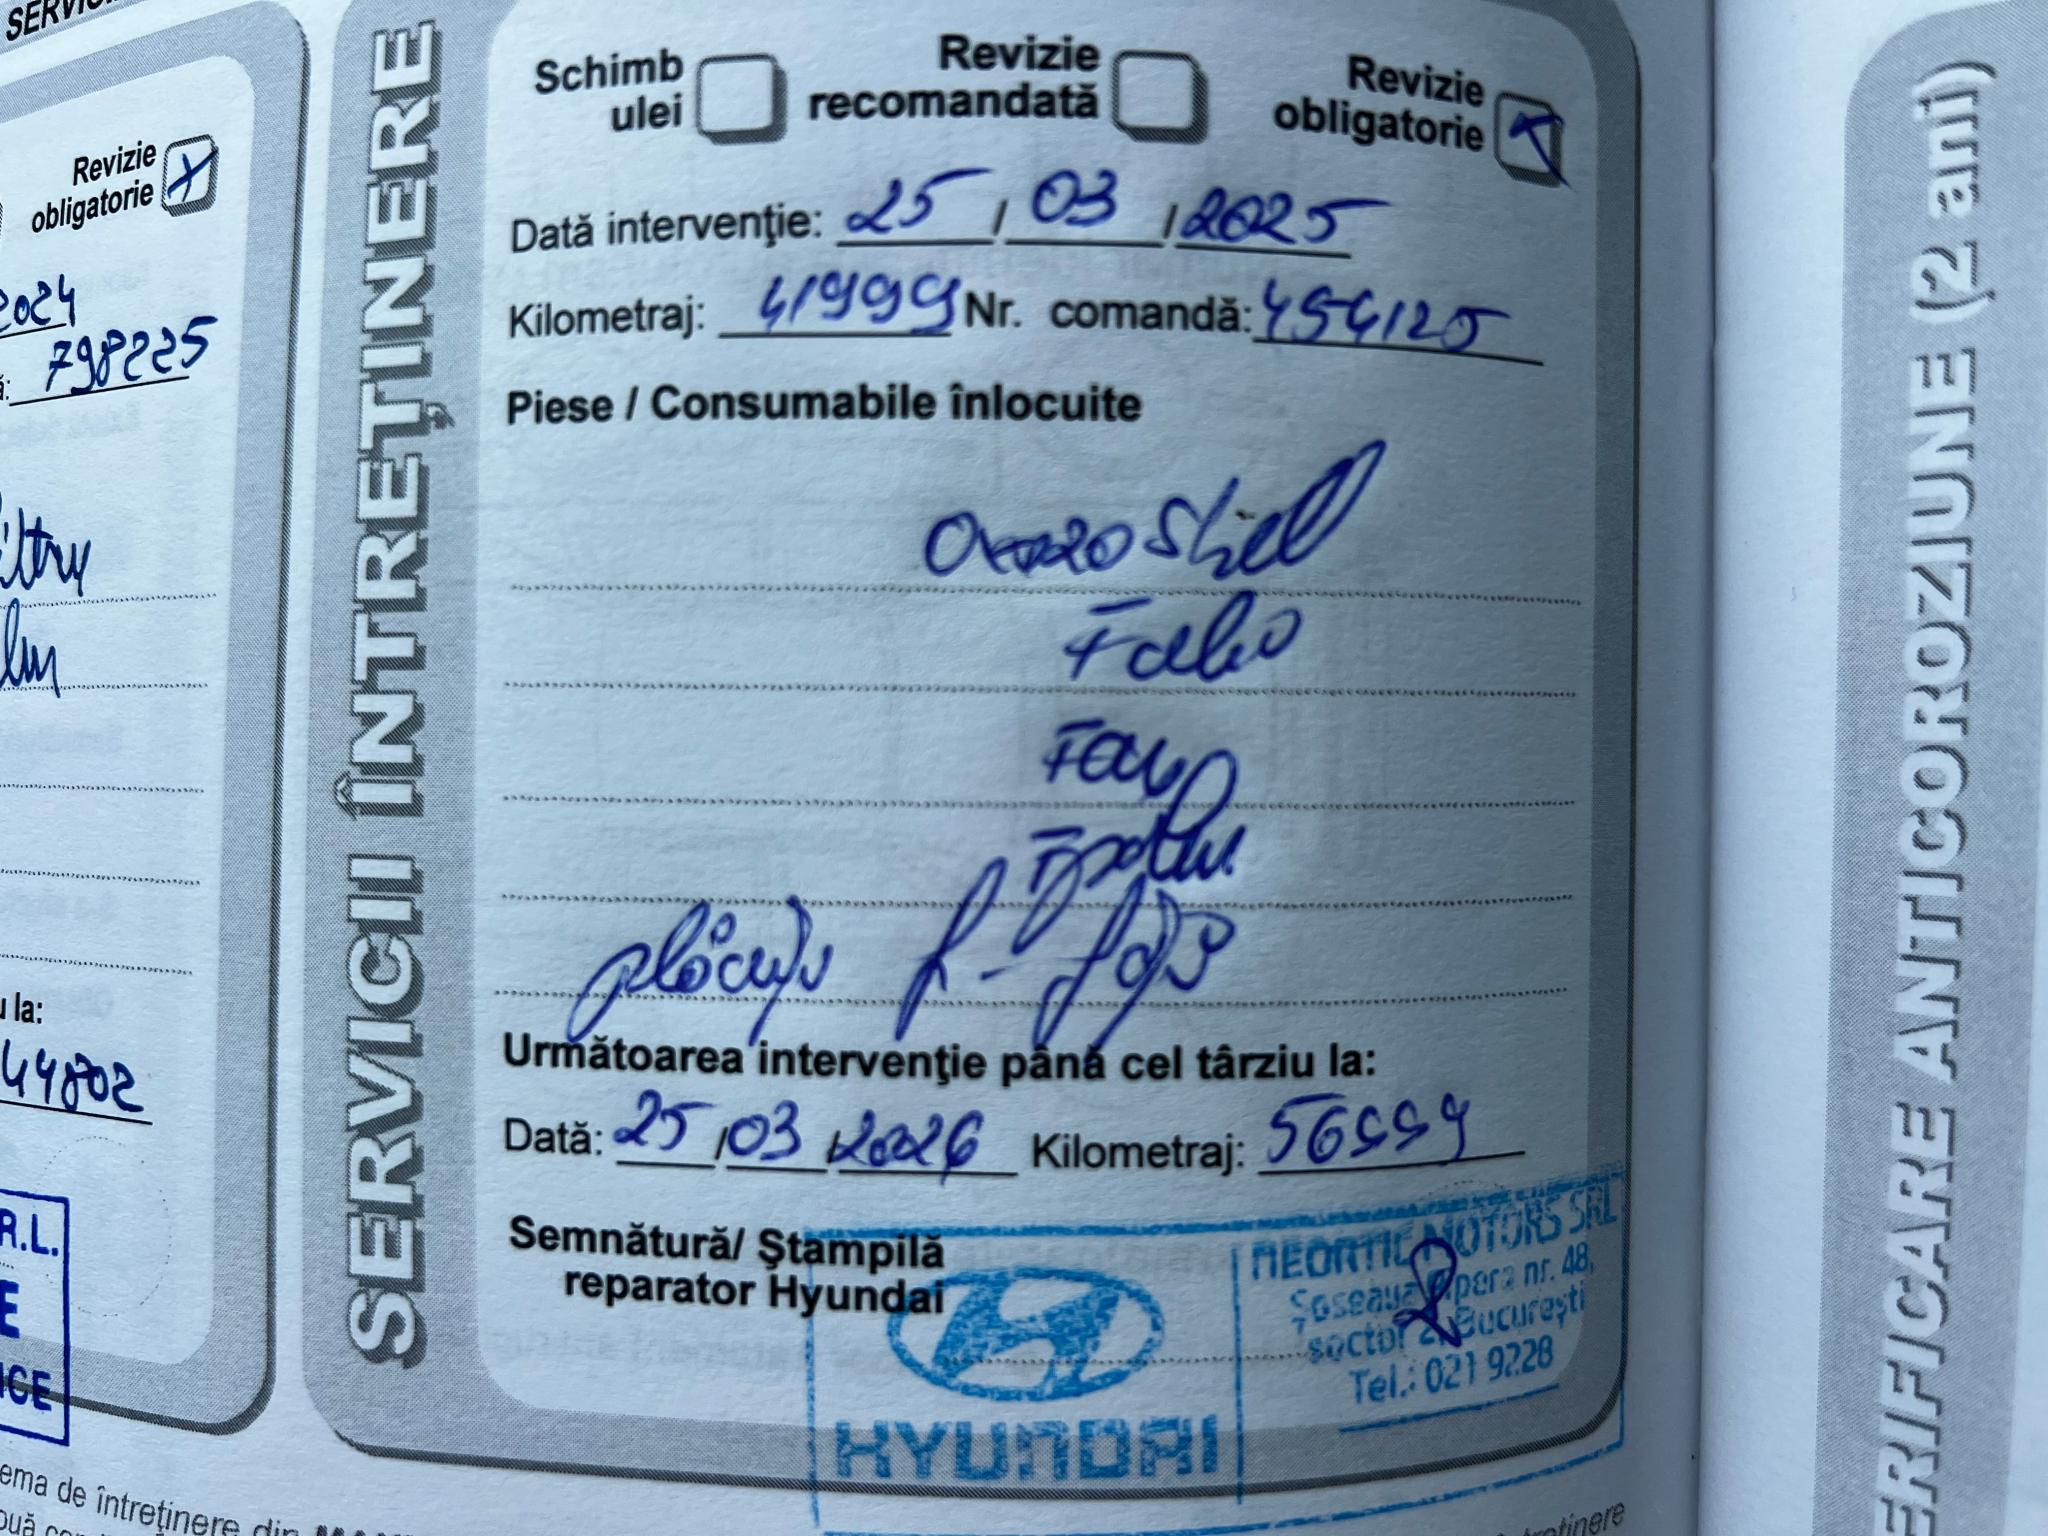 SERVICII ÎNTREȚINERE
Schimb ulei
Revizie recomandată
Revizie obligatorie
Dată intervenţie: 25 / 03 / 2025
Kilometraj: 41999 Nr. comandă: 454125
Piese / Consumabile înlocuite
0W20 Shell
plăcuțe
Următoarea intervenţie până cel târziu la:
Dată: 25 / 03 / 2026 Kilometraj: 56999
Semnătură/ Ştampilă
reparator Hyundai
HYUNDAI
NEORTIC MOTORS SRL
Soseaua Pipera nr. 48,
sector 2, Bucureşti
Tel.: 021 9228
Revizie
obligatorie
2024
798225
u la:
44802
R.L.
E
ICE
ema de întreţinere din
întreţinere
ERIFICARE ANTICOROZIUNE (2 ani)